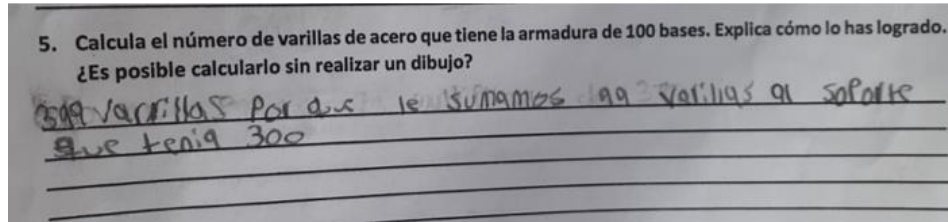 5. Calcula el número de varillas de acero que tiene la armadura de 100 bases. Explica cómo lo has logrado.
¿Es posible calcularlo sin realizar un dibujo?
399 varrillas por que le sumamos 99 varillas al soporte
que tenia 300